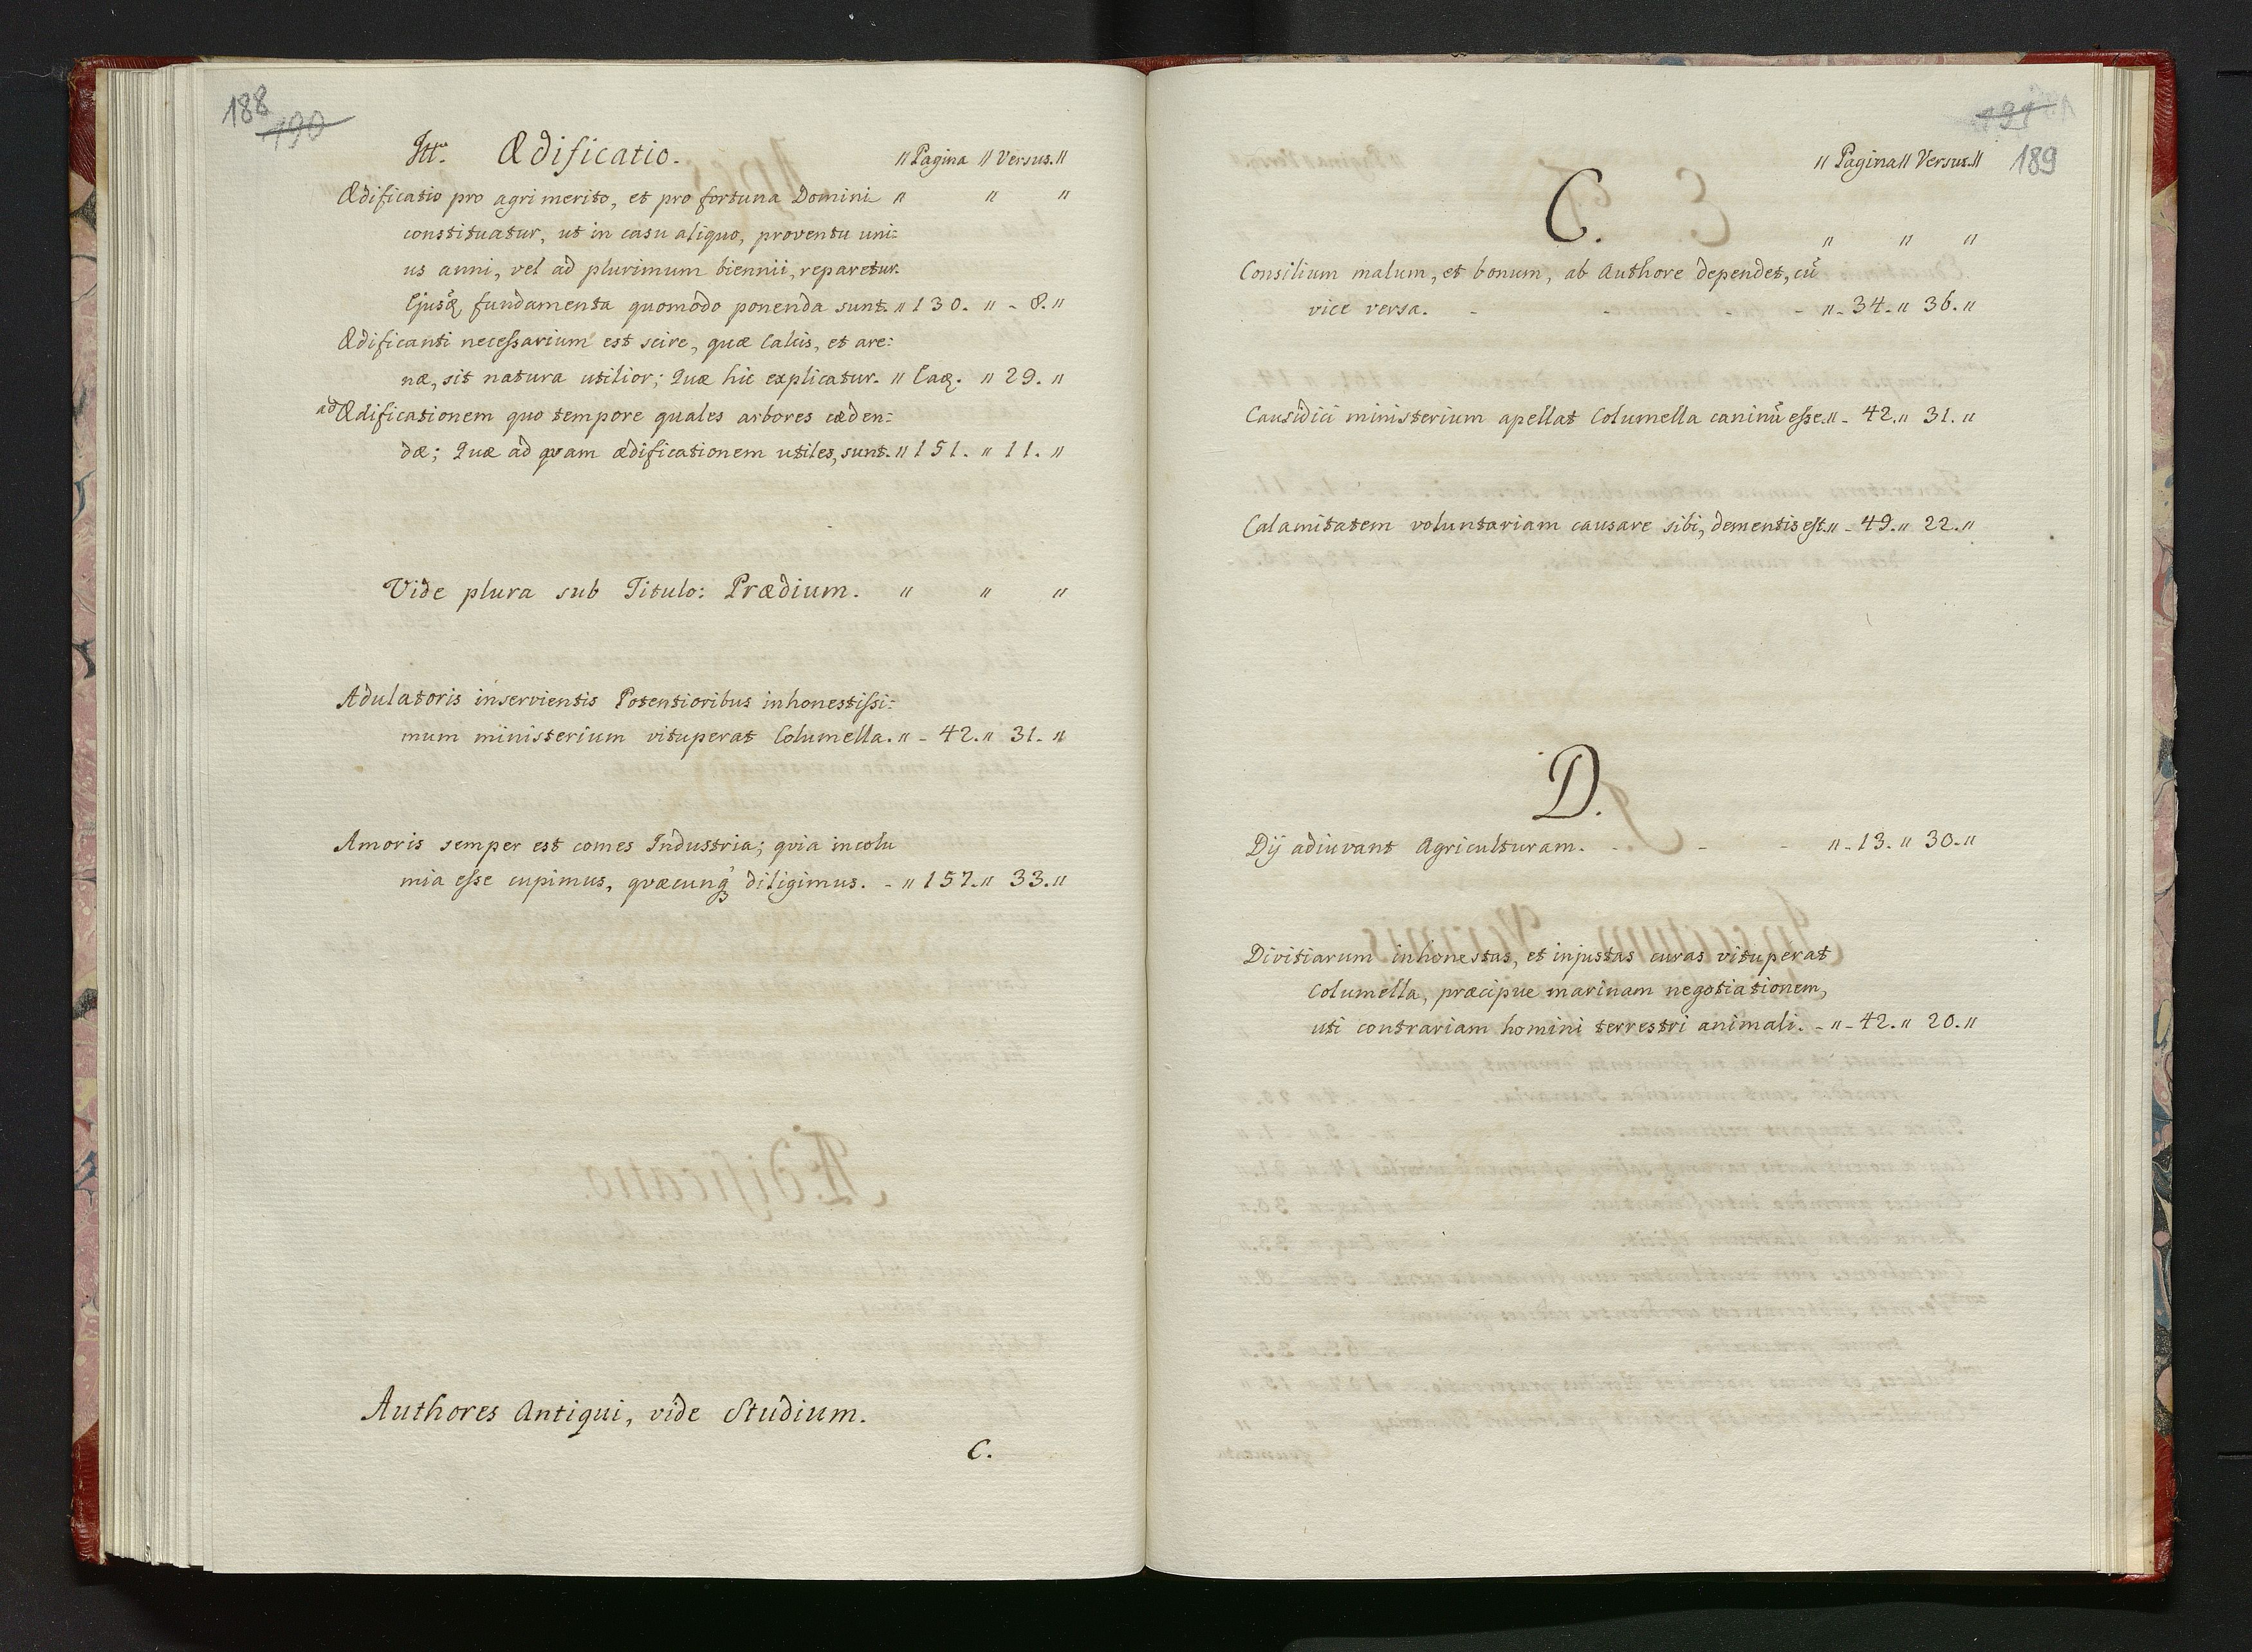 188
190
Ittr. Ædificatio. " Pagina " Versus. "
Ædificatio pro agri merito, et pro fortuna Domini " " "
constituatur, ut in casu aliquo, proventu uni=
us anni, vel ad plurimum biennii, reparetur.
Ejusq́ fundamenta quomodo ponenda sunt. " 130. " - 8. "
Ædificanti necessarium est scire, quæ Calcis, et are=
næ, sit natura utilior; Quæ hic explicatur. " Eaq. " 29. "
ad Ædificationem quo tempore quales arbores cæden=
dæ; Quæ ad qvam ædificationem utiles, sunt. " 151. " 11. "
Vide plura sub Titulo: Prædium. " " "
Adulatoris inservientis Potentioribus inhonestissi=
mum ministerium vituperat Columella. " - 42. " 31. "
Amoris semper est comes Industria; qvia incolu
mia esse cupimus, qvæcunq́ diligimus. - " 157. " 33. "
Authores Antiqui, vide Studium.
C.
191
" Pagina " Versus. " 189
C.
" " "
Consilium malum, et bonum, ab Authore dependet, cū
vice versa. - - - - " - 34. " 36. "
Causidici ministerium apellat Columella caninū esse. " - 42. " 31. "
Calamitatem voluntariam causare sibi, dementis est. " - 49. " 22. "
D.
Dij adiuvant Agriculturam. - - - " - 13. " 30. "
Divitiarum inhonestas, et injustas curas vituperat
Columella, præcipue marinam negotiationem,
uti contrariam homini terrestri animali. - " - 42. " 20. "